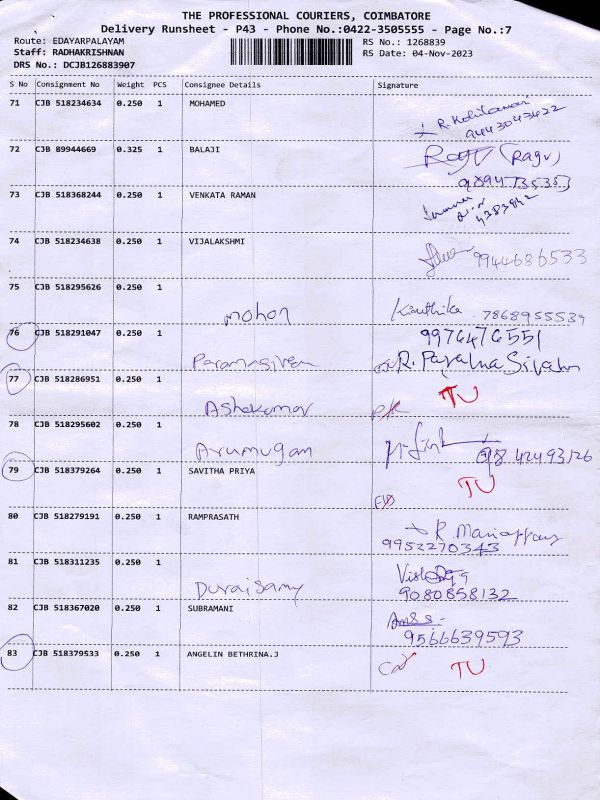 THE PROFESSIONAL COURIERS, COIMBATORE
Delivery Runsheet - P43 - Phone No.:0422-3505555 - Page No.:7
Route: EDAYARPALAYAM RS No.: 1268839
Staff: RADHAKRISHNAN RS Date: 04-Nov-2023
DRS No.: DCJB126883907
S No Consignment No Weight PCS Consignee Details Signature
71 CJB 518234634 0.250 1 MOHAMED
9443043422
72 CJB 89944669 0.325 1 BALAJI (Ragu)
73 CJB 518368244 0.250 1 VENKATA RAMAN
74 CJB 518234638 0.250 1 VIJALAKSHMI
9944686533
75 CJB 518295626 0.250 1
Mohan Kiruthika 7868955539
76 CJB 518291047 0.250 1 9976476551
Paramasivam
77 CJB 518286951 0.250 1 TU
Ashokumar
78 CJB 518295602 0.250 1
Arumugam 9842493126
79 CJB 518379264 0.250 1 SAVITHA PRIYA TU
80 CJB 518279191 0.250 1 RAMPRASATH
9952270343
81 CJB 518311235 0.250 1
Duraisamy 9080858132
82 CJB 518367020 0.250 1 SUBRAMANI
9566639593
83 CJB 518379533 0.250 1 ANGELIN BETHRINA.J TU